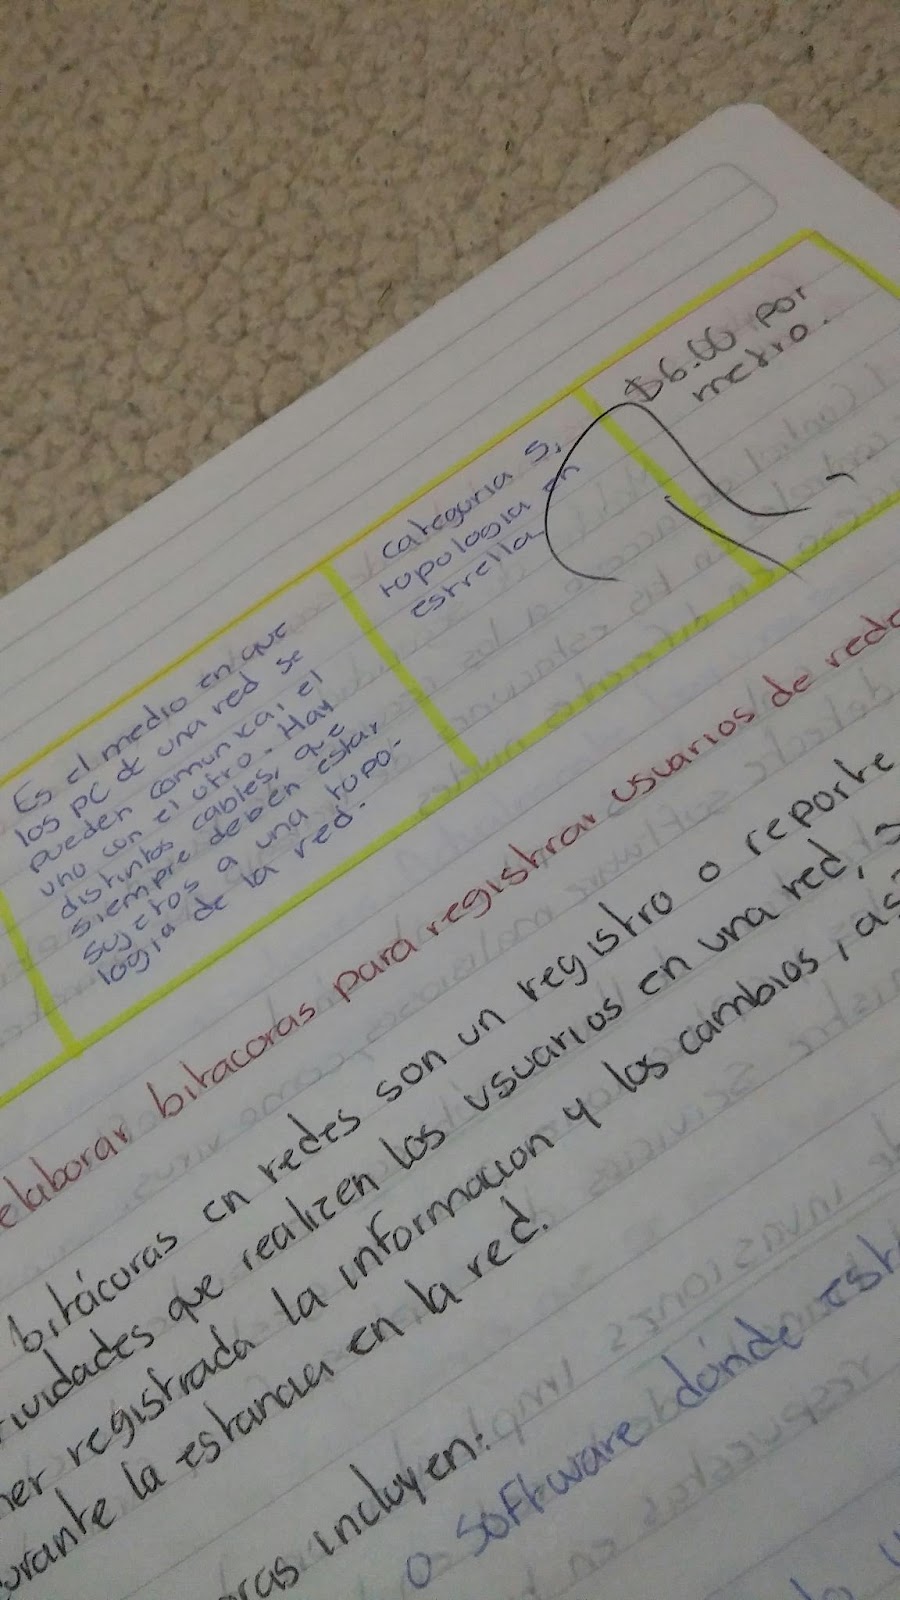 Es el medio en que
los PC de una red se
pueden comunica, el
uno con el otro. Hay
distintos cables, que
siempre deben estar
sujetos a una topo-
logia de la red.
categoria 5,
topologia en
estrella
$6.00 por
metro.
elaborar bitacoras para registrar usuarios de rede
bitácoras en redes son un registro o reporte
ividades que realizen los usuarios en una red,
ner registrada la informacion y los cambios, as
urante la estancia en la red.
oras incluyen:
o software dónde est